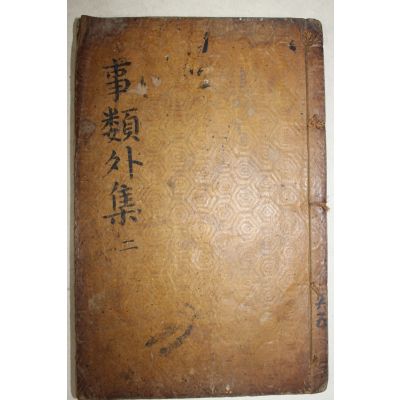 事類外集 二